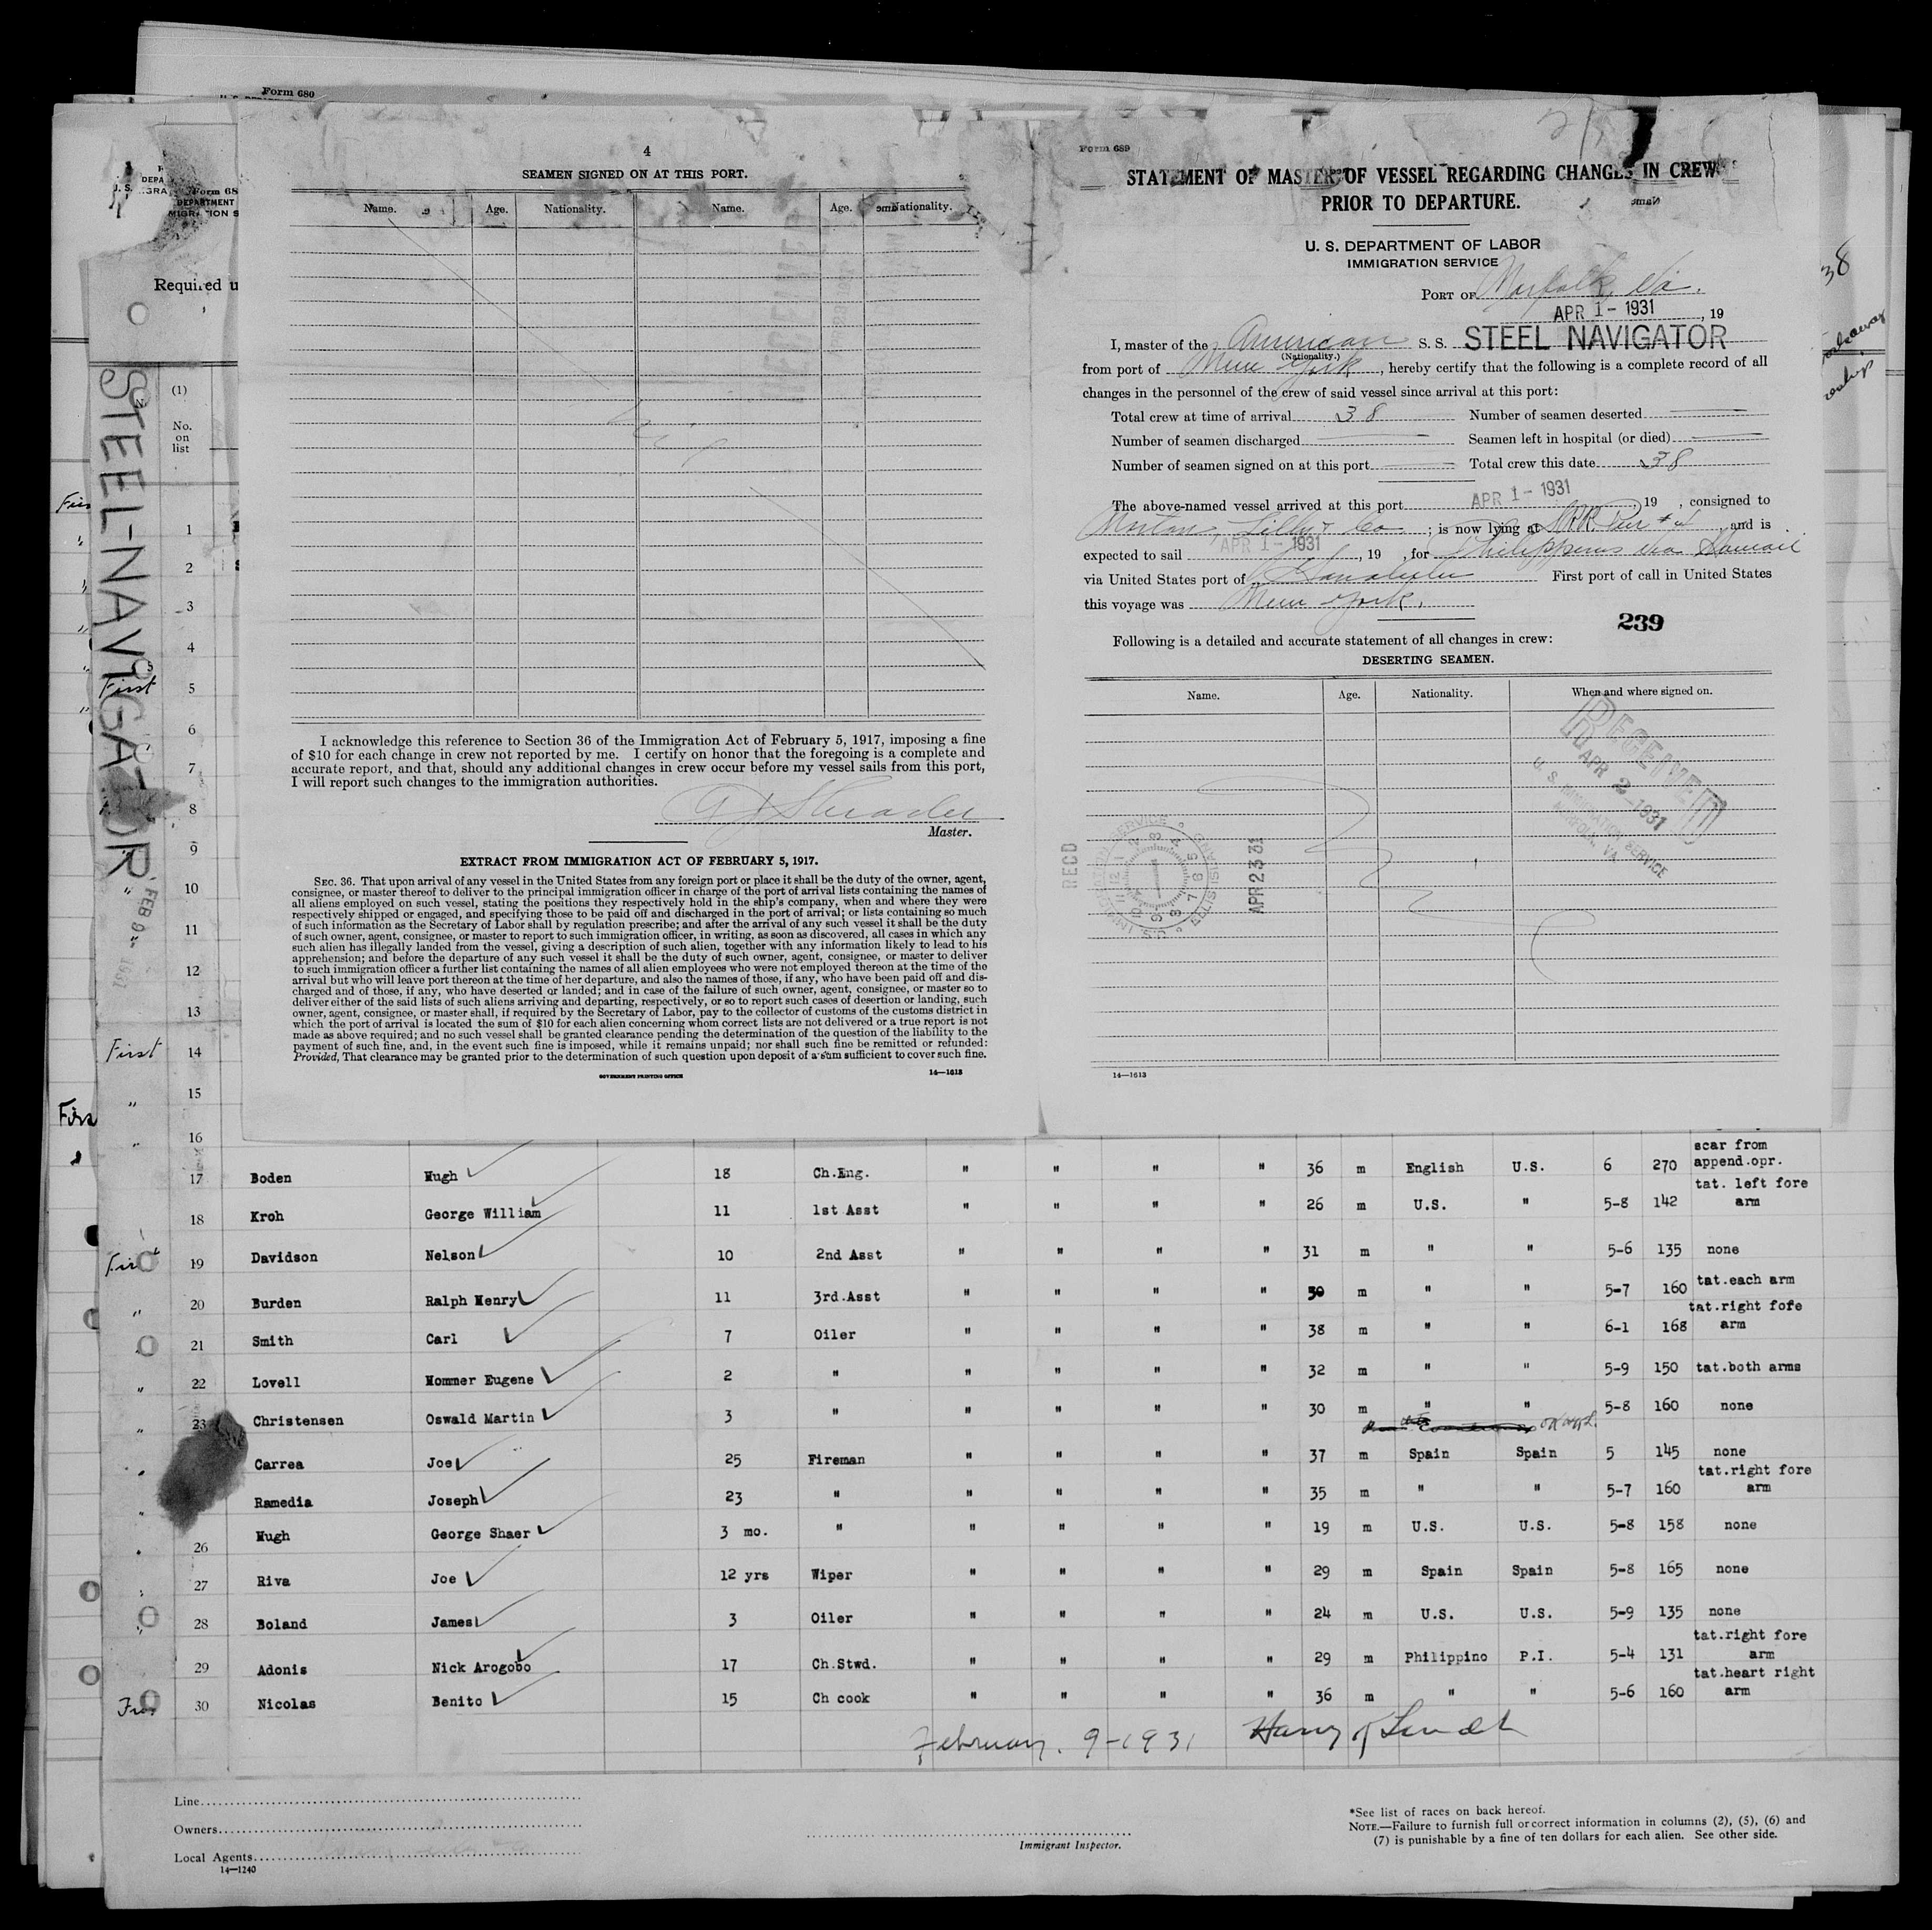 Form 680
Form 68
DEPARTMENT
Required u
STEEL-NAVIGATOR
(1)
No.
on
list
1
2
3
4
5
6
7
8
9
10
11
12
13
14
15
16
First
First
4
SEAMEN SIGNED ON AT THIS PORT.
Name. Age. Nationality. Name. Age. Nationality.
I acknowledge this reference to Section 36 of the Immigration Act of February 5, 1917, imposing a fine
of $10 for each change in crew not reported by me. I certify on honor that the foregoing is a complete and
accurate report, and that, should any additional changes in crew occur before my vessel sails from this port,
I will report such changes to the immigration authorities.
Master.
EXTRACT FROM IMMIGRATION ACT OF FEBRUARY 5, 1917.
SEC. 36. That upon arrival of any vessel in the United States from any foreign port or place it shall be the duty of the owner, agent,
consignee, or master thereof to deliver to the principal immigration officer in charge of the port of arrival lists containing the names of
all aliens employed on such vessel, stating the positions they respectively hold in the ship's company, when and where they were
respectively shipped or engaged, and specifying those to be paid off and discharged in the port of arrival; or lists containing so much
of such information as the Secretary of Labor shall by regulation prescribe; and after the arrival of any such vessel it shall be the duty
of such owner, agent, consignee, or master to report to such immigration officer, in writing, as soon as discovered, all cases in which any
such alien has illegally landed from the vessel, giving a description of such alien, together with any information likely to lead to his
apprehension; and before the departure of any such vessel it shall be the duty of such owner, agent, consignee, or master to deliver
to such immigration officer a further list containing the names of all alien employees who were not employed thereon at the time of the
arrival but who will leave port thereon at the time of her departure, and also the names of those, if any, who have been paid off and dis-
charged and of those, if any, who have deserted or landed; and in case of the failure of such owner, agent, consignee, or master so to
deliver either of the said lists of such aliens arriving and departing, respectively, or so to report such cases of desertion or landing, such
owner, agent, consignee, or master shall, if required by the Secretary of Labor, pay to the collector of customs of the customs district in
which the port of arrival is located the sum of $10 for each alien concerning whom correct lists are not delivered or a true report is not
made as above required; and no such vessel shall be granted clearance pending the determination of the question of the liability to the
payment of such fine, and, in the event such fine is imposed, while it remains unpaid; nor shall such fine be remitted or refunded:
Provided, That clearance may be granted prior to the determination of such question upon deposit of a sum sufficient to cover such fine.
GOVERNMENT PRINTING OFFICE 14—1613
Form 689
STATEMENT OF MASTER OF VESSEL REGARDING CHANGES IN CREW
PRIOR TO DEPARTURE.
U. S. DEPARTMENT OF LABOR
IMMIGRATION SERVICE
PORT OF Norfolk, Va.
APR 1 - 1931, 19
I, master of the American S. S. STEEL NAVIGATOR
(Nationality.)
from port of New York, hereby certify that the following is a complete record of all
changes in the personnel of the crew of said vessel since arrival at this port:
Total crew at time of arrival 38 Number of seamen deserted
Number of seamen discharged Seamen left in hospital (or died)
Number of seamen signed on at this port Total crew this date 38
The above-named vessel arrived at this port APR 1 - 1931 19 , consigned to
Norton, Lilly & Co ; is now lying at Pier #4, and is
expected to sail APR 1 - 1931, 19 , for Philippines via Hawaii
via United States port of Honolulu First port of call in United States
this voyage was New York.
239
Following is a detailed and accurate statement of all changes in crew:
DESERTING SEAMEN.
Name. Age. Nationality. When and where signed on.
RECEIVED
APR 2 1931
U. S. IMMIGRATION SERVICE
NORFOLK, VA.
RECD
U.S. IMMIGRATION SERVICE ELLIS ISLAND
APR 2 3 31
14—1613
38
scar from
17 Boden Hugh 18 Ch.Eng. " " " " 36 m English U.S. 6 270 append.opr.
tat. left fore
18 Kroh George William 11 1st Asst " " " " 26 m U.S. " 5-8 142 arm
19 Davidson Nelson 10 2nd Asst " " " " 31 m " " 5-6 135 none
20 Burden Ralph Henry 11 3rd.Asst " " " " 30 m " " 5-7 160 tat.each arm
tat.right fofe
21 Smith Carl 7 Oiler " " " " 38 m " " 6-1 168 arm
22 Lovell Hommer Eugene 2 " " " " " 32 m " " 5-9 150 tat.both arms
23 Christensen Oswald Martin 3 " " " " " 30 m " " 5-8 160 none
Carrea Joe 25 Fireman " " " " 37 m Spain Spain 5 145 none
tat.right fore
Ramedia Joseph 23 " " " " " 35 m " " 5-7 160 arm
26 Hugh George Shaer 3 mo. " " " " " 19 m U.S. U.S. 5-8 158 none
27 Riva Joe 12 yrs Wiper " " " " 29 m Spain Spain 5-8 165 none
28 Boland James 3 Oiler " " " " 24 m U.S. U.S. 5-9 135 none
tat.right fore
29 Adonis Nick Arogobo 17 Ch.Stwd. " " " " 29 m Philippino P.I. 5-4 131 arm
tat.heart right
30 Nicolas Benito 15 Ch cook " " " " 36 m " " 5-6 160 arm
February. 9-1931 Harry
Line
Owners
Local Agents
14—1240
Immigrant Inspector.
*See list of races on back hereof.
NOTE.—Failure to furnish full or correct information in columns (2), (5), (6) and
(7) is punishable by a fine of ten dollars for each alien. See other side.